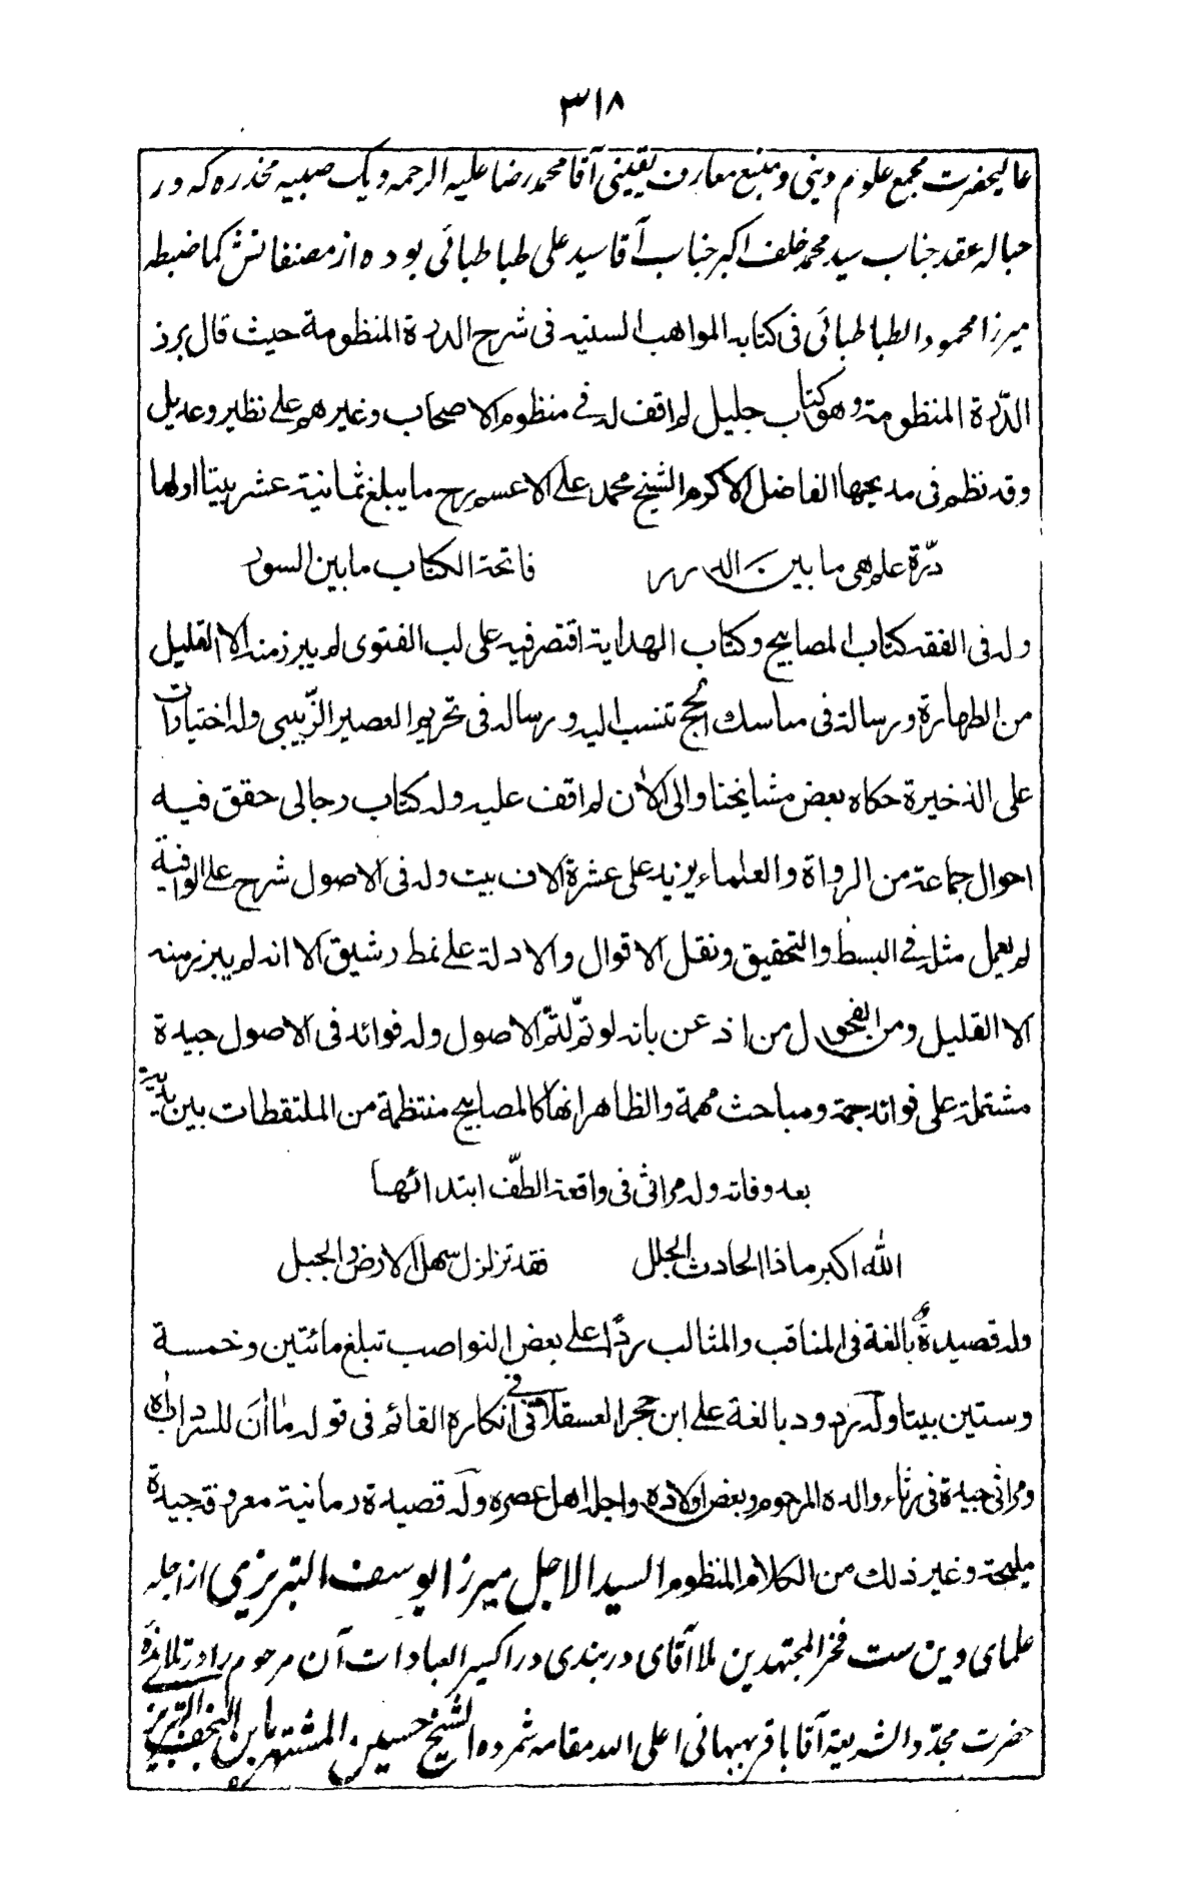 ٣١٨
عالیحضرت مجمع علوم دینی و منبع معارف یقینی آقا محمد رضا علیه الرحمه و یک صبیه مخدره که در
حباله عقد جناب سید محمد خلف اکبر جناب آقا سید علی طباطبائی بوده از مصنفاتش کما ضبطه
میرزا محمود الطباطبائی فی کتابه المواهب السنیه فی شرح الدرة المنظومة حیث قال برز
الدّرة المنظومة وهو کتاب جلیل لم اقف له فی منظوم الاصحاب وغیرهم علی نظیر وعدیل
وقد نظم فی مدیحها الفاضل الاکرم الشیخ محمد علی الاعسم رح ما یبلغ ثمانیة عشر بیتا اولها
درّة علم هی ما بین الدرر فاتحة الکتاب ما بین السور
وله فی الفقه کتاب المصابیح وکتاب الهدایة اقتصر فیه علی لب الفتوی لم یبرز منه الا القلیل
من الطهارة ورسالة فی مناسک الحج تنسب الیه ورسالة فی تحریم العصیر الزّبیبی وله اختیارات
علی الذخیرة حکاه بعض مشایخنا والی الآن لم اقف علیه وله کتاب رجالی حقق فیه
احوال جماعة من الرواة والعلماء یزید علی عشرة الاف بیت وله فی الاصول شرح علی الوافیة
لم یعمل مثله فی البسط والتحقیق ونقل الاقوال والادلة علی نمط رشیق الا انه لم یبرز منه
الا القلیل ومن الفحول من اذعن بانه لو تمّ لتمّ الاصول وله فوائد فی الاصول جیدة
مشتملة علی فوائد جمة ومباحث مهمة والظاهر انها کالمصابیح منتظمة من الملتقطات بین یدیه
بعد وفاته وله مراثی فی واقعة الطفّ ابتدائها
الله اکبر ماذا الحادث الجلل فقد تزلزل سهل الارض والجبل
وله قصیدة بالغة فی المناقب والمثالب ردّا علی بعض النواصب تبلغ مائتین وخمسة
وستین بیتا وله ردود بالغة علی ابن حجر العسقلانی فی انکاره القائم فی قوله ما ان للسرداب اه
ومراثی جیدة فی رثاء والده المرحوم وبعض اولاده واجلاء اهل عصره وله قصیدة رمانیة معروفة جیدة
ملیحة وغیر ذلک من الکلام المنظوم السید الاجل میرزا یوسف التبریزی از اجله
علمای دین ست فخر المجتهدین ملا آقای دربندی در اکسیر العبادات آن مرحوم را در تلامذهٔ
حضرت مجدّد الشریعة آقا باقر بهبهانی اعلی الله مقامه شمرده الشیخ حسین المشتهر بابن النجف التبریزی